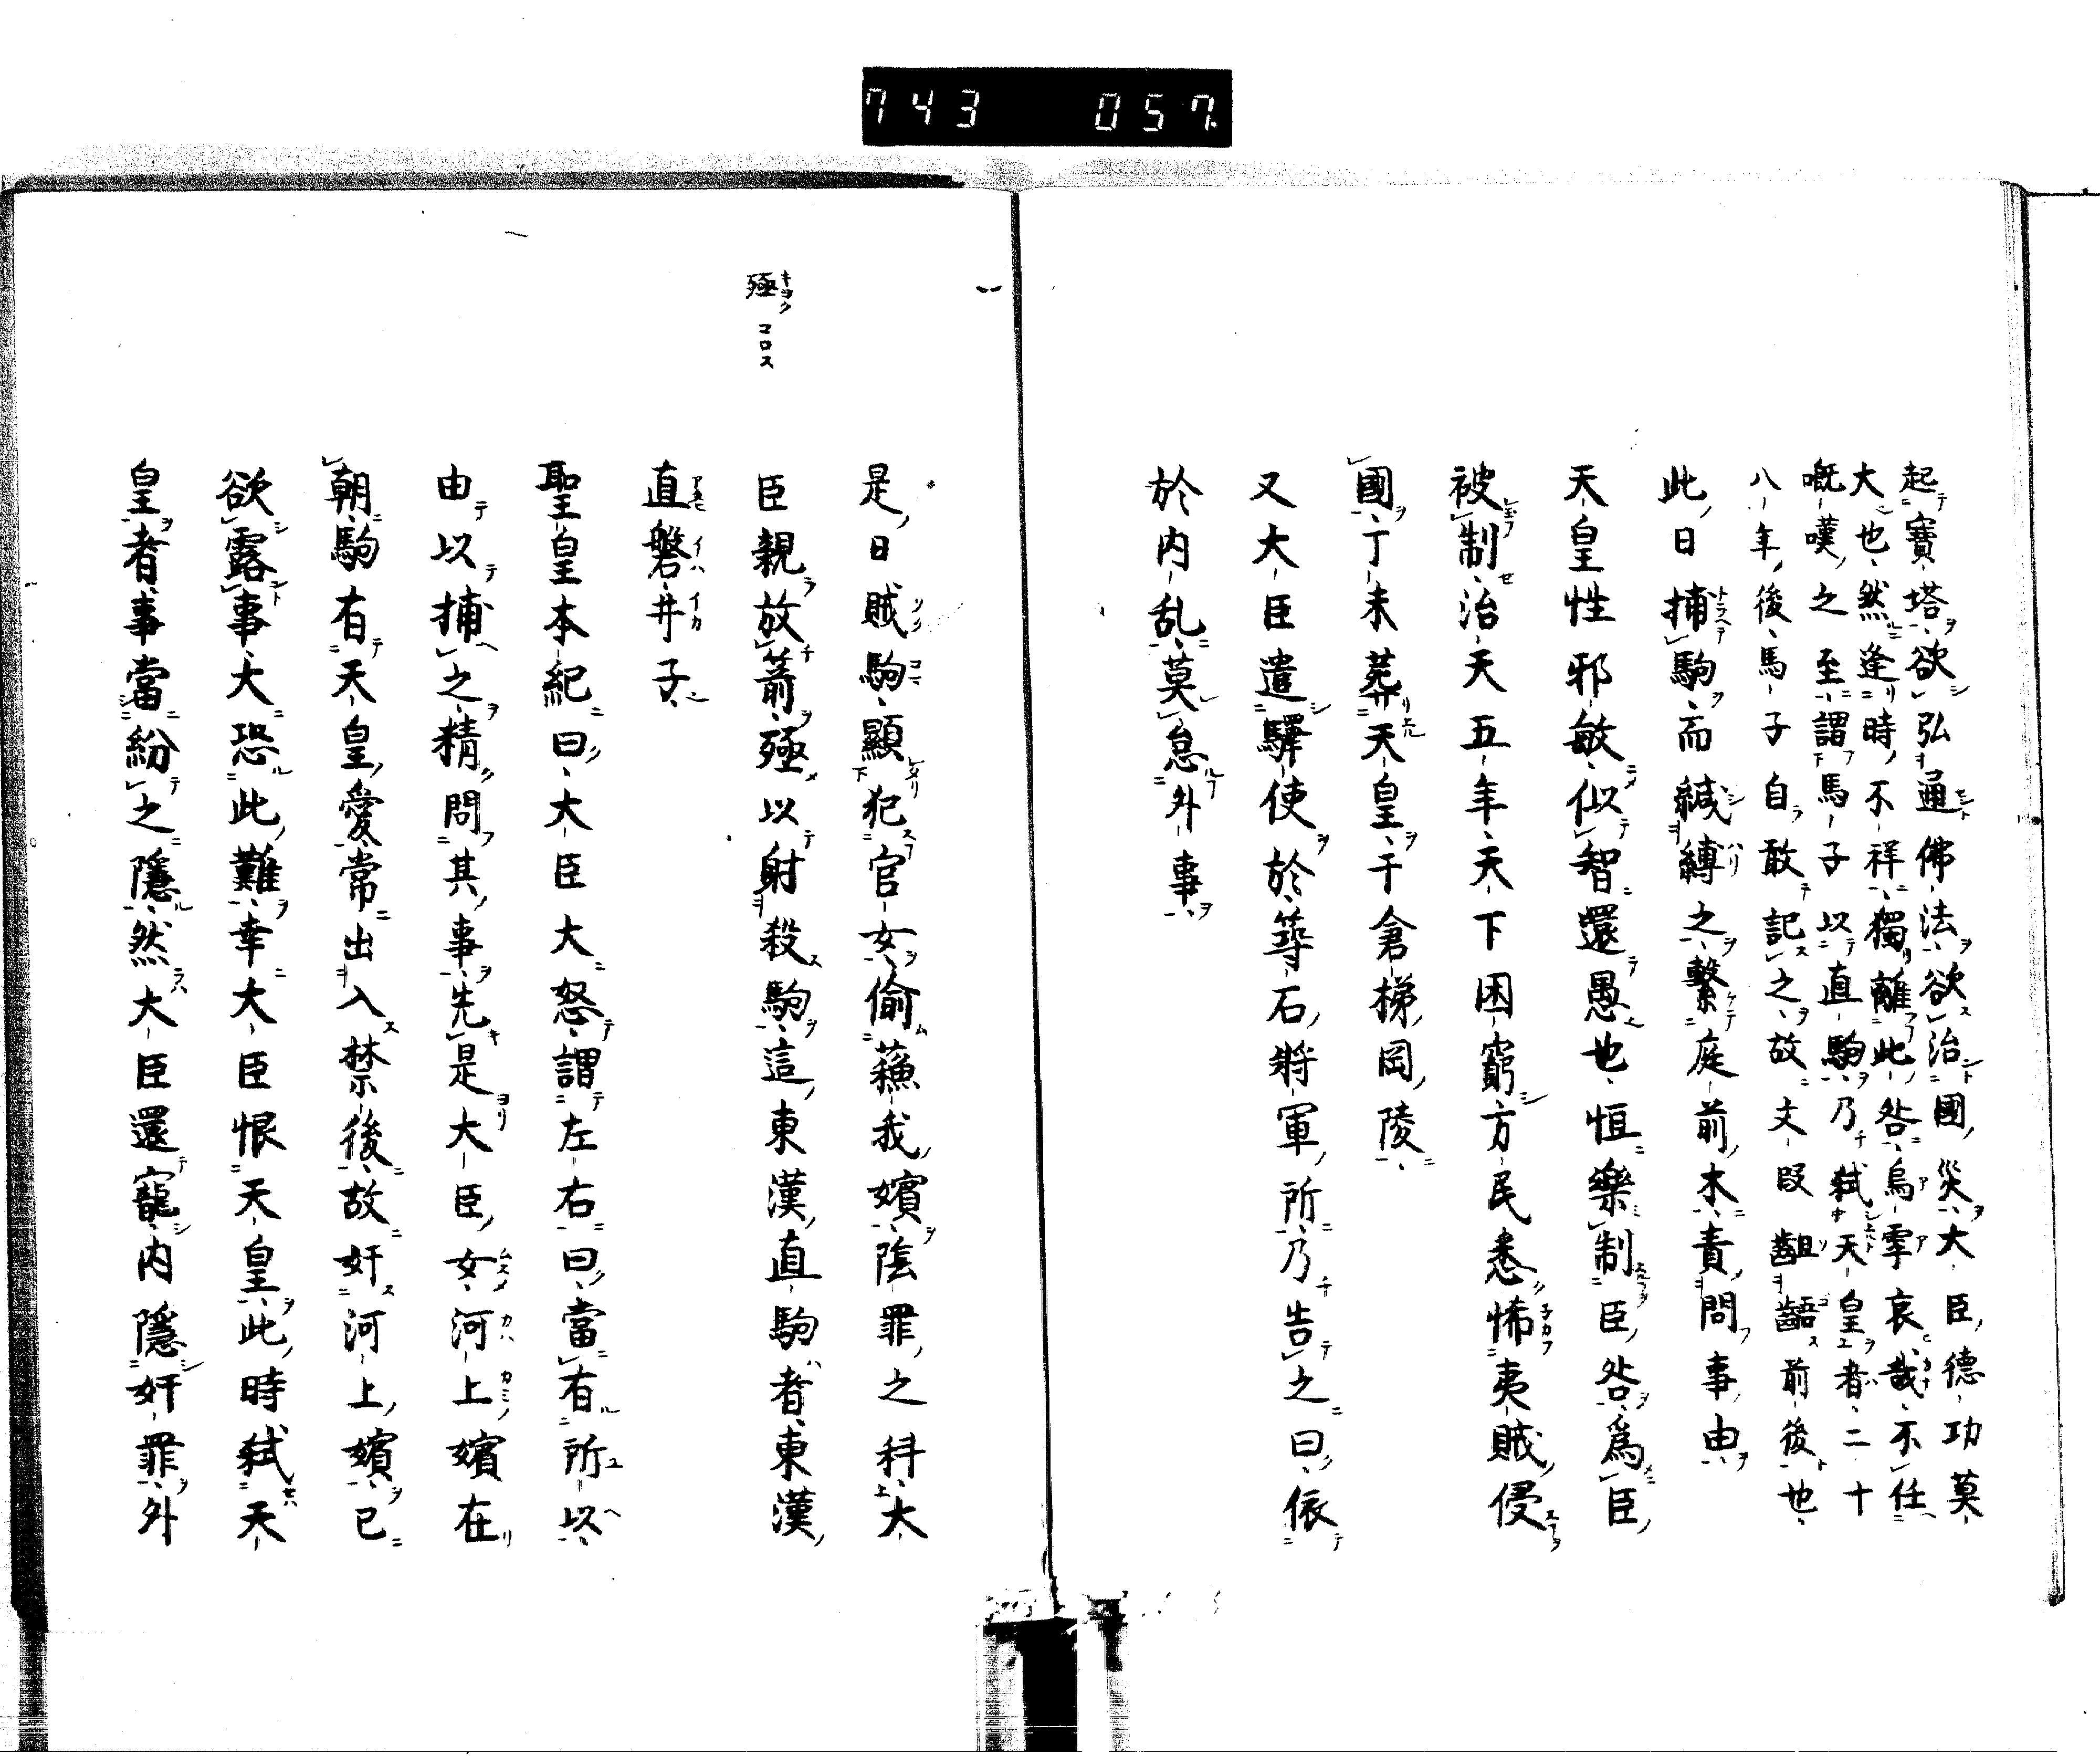 743 057
起寶塔欲弘通佛法欲治國災大臣德功莫
大也然逢時不祥獨離此咎烏虖哀哉不任
嘅嘆之至謂馬子以直駒乃弑天皇者二十
八年後馬子自敢記之故文段齟齬前後也
此日捕駒而緘縛之繫庭前木責問事由
天皇性邪敏似智還愚也恒樂制臣咎爲臣
被制治天五年天下困窮方民悉怖夷賊侵
國丁未葬天皇于倉梯岡陵
又大臣遣驛使於筭石將軍所乃告之曰依
於内乱莫怠外事
是日賊駒顯犯官女偷蘓我嬪陰罪之科大
殛 キヨク コロス
臣親放箭殛以射殺駒這東漢直駒者東漢
直磐井子
聖皇本紀曰大臣大怒謂左右曰當有所以
由以捕之精問其事先是大臣女河上嬪在
朝駒有天皇愛常出入禁後故奸河上嬪已
欲露事大恐此難幸大臣恨天皇此時弑天
皇者事當紛之隱然大臣還寵内隱奸罪外